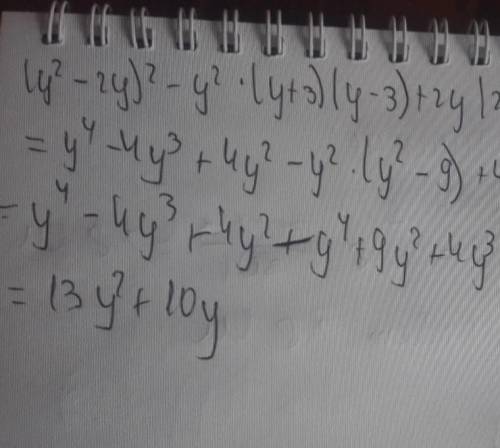 (y² - 2y)² - y² · (y+3)(y-3) + 2y (2
= y⁴ - 4y³ + 4y² - y² · (y² - 9) + 4
= y⁴ - 4y³ + 4y² - y⁴ + 9y² + 4y³
= 13y² + 10y